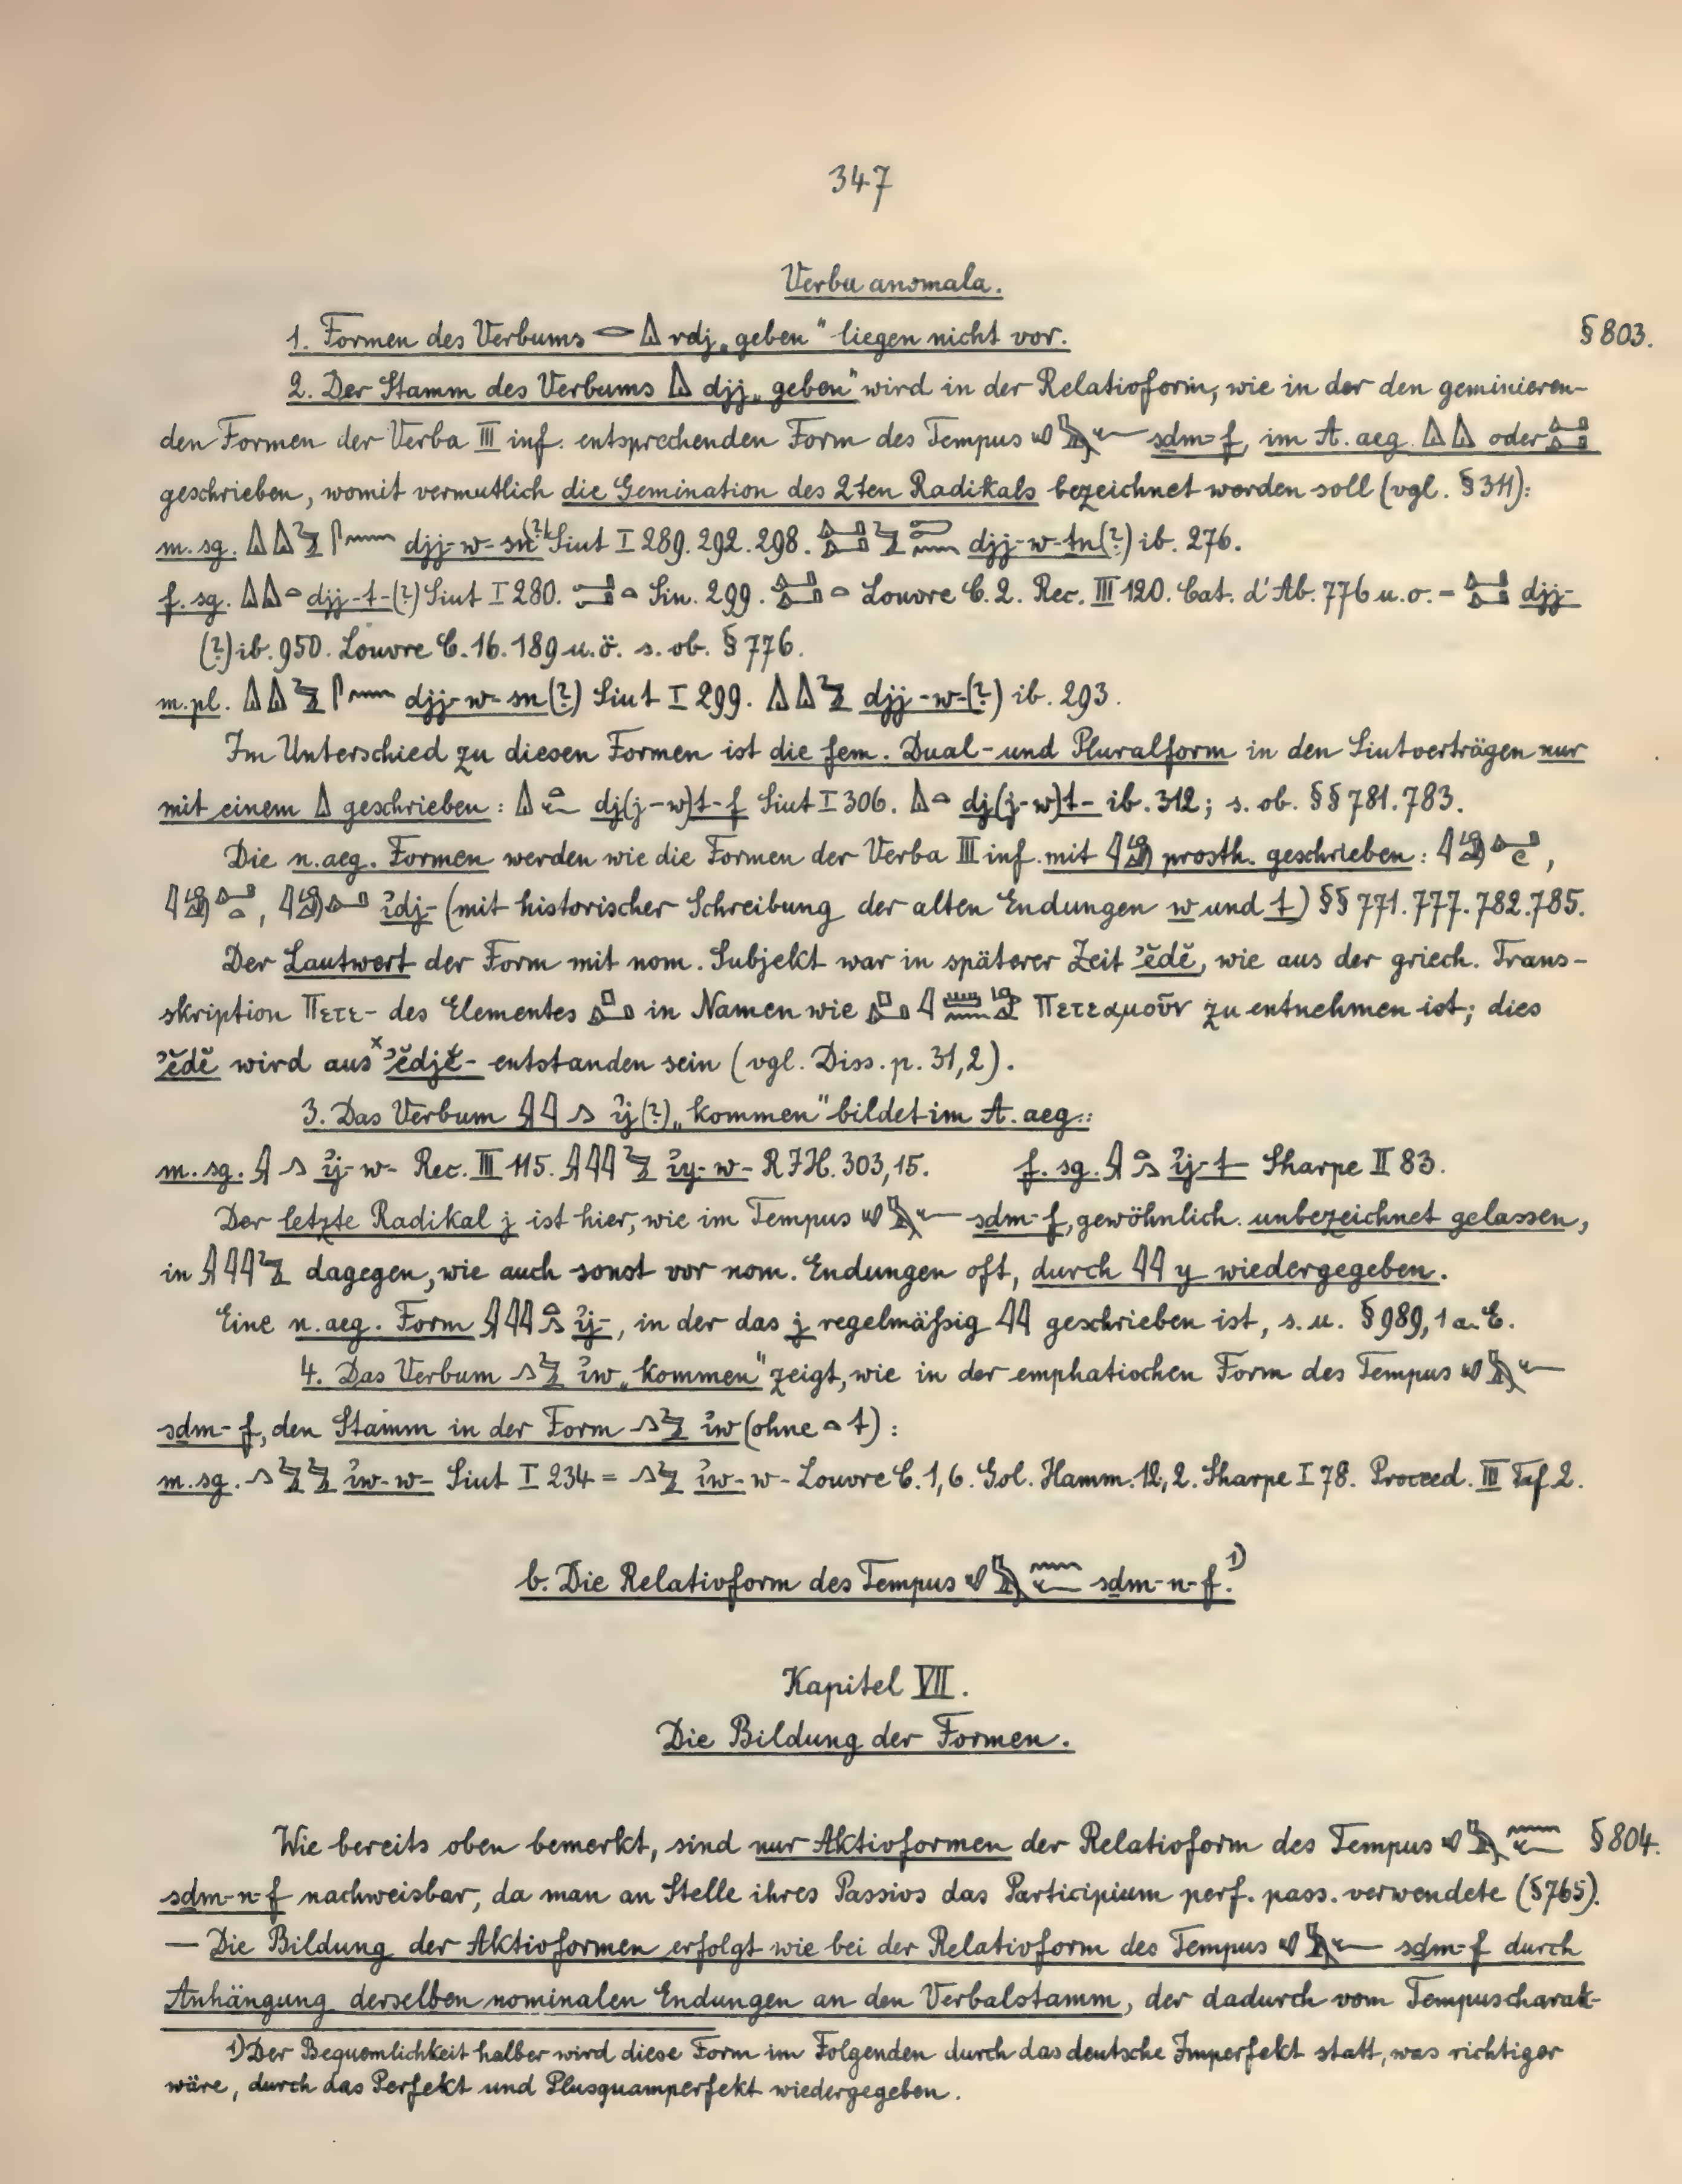 347
Verba anomala.
1. Formen des Verbums 𓂋𓏙 rdj „geben“ liegen nicht vor. § 803.
2. Der Stamm des Verbums 𓏙 djj „geben“ wird in der Relativform, wie in der den geminieren-
den Formen der Verba III inf. entsprechenden Form des Tempus sḏm-f, im A. aeg. 𓏙𓏙 oder
geschrieben, womit vermutlich die Gemination des 2ten Radikals bezeichnet werden soll (vgl. § 311):
m. sg. 𓏙𓏙𓅱𓋴𓈖 djj-w-sn(?) Siut I 289. 292. 298. djj-w-ṯn(?) ib. 276.
f. sg. 𓏙𓏙𓏏 djj-t-(?) Siut I 280. Sin. 299. Louvre C. 2. Rec. III 120. Cat. d'Ab. 776 u. o. - djj-
(?) ib. 950. Louvre C. 16. 189 u. ö. s. ob. § 776.
m. pl. 𓏙𓏙𓅱𓋴𓈖 djj-w-sn(?) Siut I 299. 𓏙𓏙𓅱 djj-w-(?) ib. 293.
Im Unterschied zu diesen Formen ist die fem. Dual- und Pluralform in den Siutverträgen nur
mit einem 𓏙 geschrieben: 𓏙𓏏𓆑 dj(j-w)t-f Siut I 306. 𓏙𓏏 dj(j-w)t- ib. 312; s. ob. §§ 781. 783.
Die n. aeg. Formen werden wie die Formen der Verba III inf. mit prosth. geschrieben: ,
, ꞽdj- (mit historischer Schreibung der alten Endungen w und t) §§ 771. 777. 782. 785.
Der Lautwert der Form mit nom. Subjekt war in späterer Zeit ʾĕdĕ, wie aus der griech. Trans-
skription Πετε- des Elementes in Namen wie Πετεαμοῦν zu entnehmen ist; dies
ʾĕdĕ wird aus ˣʾĕdjĕ- entstanden sein (vgl. Diss. p. 31, 2).
3. Das Verbum 𓇋𓇋𓂻 ꞽj(?) „kommen“ bildet im A. aeg.:
m. sg. 𓇋𓂻 ꞽj-w- Rec. III 115. ꞽy-w- RIH. 303, 15. f. sg. ꞽj-t- Sharpe II 83.
Der letzte Radikal j ist hier, wie im Tempus sḏm-f, gewöhnlich unbezeichnet gelassen,
in dagegen, wie auch sonst vor nom. Endungen oft, durch 𓇋𓇋 y wiedergegeben.
Eine n. aeg. Form ꞽj-, in der das j regelmäßig 𓇋𓇋 geschrieben ist, s. u. § 989, 1 a. E.
4. Das Verbum 𓂻𓅱 ꞽw „kommen“ zeigt, wie in der emphatischen Form des Tempus
sḏm-f, den Stamm in der Form 𓂻𓅱 ꞽw (ohne 𓏏 t):
m. sg. 𓂻𓅱𓅱 ꞽw-w- Siut I 234 = 𓂻𓅱 ꞽw-w- Louvre C. 1, 6. Gol. Hamm. 12, 2. Sharpe I 78. Proceed. III Taf 2.
b. Die Relativform des Tempus sḏm-n-f. 1)
Kapitel VII.
Die Bildung der Formen.
Wie bereits oben bemerkt, sind nur Aktivformen der Relativform des Tempus § 804.
sḏm-n-f nachweisbar, da man an Stelle ihres Passivs das Participium perf. pass. verwendete (§ 765).
— Die Bildung der Aktivformen erfolgt wie bei der Relativform des Tempus sḏm-f durch
Anhängung derselben nominalen Endungen an den Verbalstamm, der dadurch vom Tempuscharak-
1) Der Bequemlichkeit halber wird diese Form im Folgenden durch das deutsche Imperfekt statt, was richtiger
wäre, durch das Perfekt und Plusquamperfekt wiedergegeben.